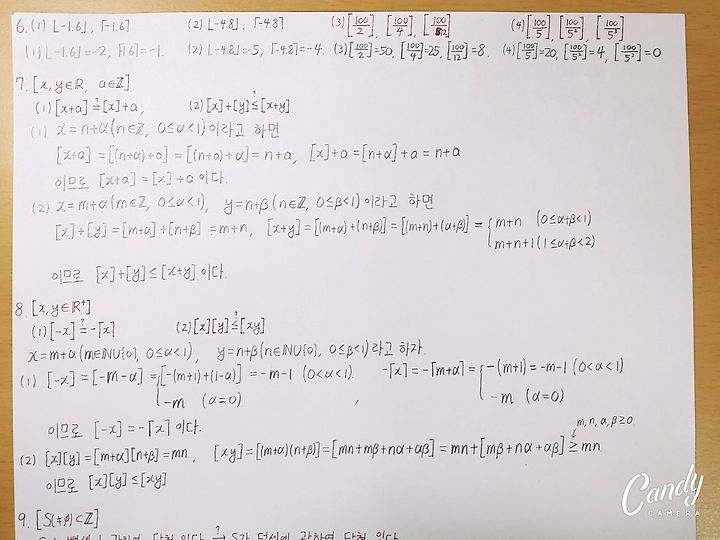 6. (1) ⌊-1.6⌋, ⌈-1.6⌉ (2) ⌊-4.8⌋, ⌈-4.8⌉ (3) [100/2], [100/4], [100/12] (4) [100/5], [100/5²], [100/5³]
(1) ⌊-1.6⌋=-2, ⌈-1.6⌉=-1. (2) ⌊-4.8⌋=-5, ⌈-4.8⌉=-4. (3) [100/2]=50, [100/4]=25, [100/12]=8. (4) [100/5]=20, [100/5²]=4, [100/5³]=0
7. [x, y∈ℝ, a∈ℤ]
(1) [x+a] ≟ [x]+a, (2) [x]+[y] ≤? [x+y]
(1) x=n+α (n∈ℤ, 0≤α<1)이라고 하면
[x+a]=[(n+α)+a]=[(n+a)+α]=n+a, [x]+a=[n+α]+a=n+a
이므로 [x+a]=[x]+a 이다.
(2) x=m+α (m∈ℤ, 0≤α<1), y=n+β (n∈ℤ, 0≤β<1)이라고 하면
[x]+[y]=[m+α]+[n+β]=m+n, [x+y]=[(m+α)+(n+β)]=[(m+n)+(α+β)]= { m+n (0≤α+β<1)
m+n+1 (1≤α+β<2)
이므로 [x]+[y]≤[x+y] 이다.
8. [x, y∈ℝ⁺]
(1) [-x] ≟ -⌈x⌉ (2) [x][y] ≤? [xy]
x=m+α (m∈ℕ∪{0}, 0≤α<1), y=n+β (n∈ℕ∪{0}, 0≤β<1)라고 하자.
(1) [-x]=[-m-α]= { [-(m+1)+(1-α)]=-m-1 (0<α<1) , -⌈x⌉=-⌈m+α⌉= { -(m+1)=-m-1 (0<α<1)
-m (α=0) -m (α=0)
이므로 [-x]=-⌈x⌉ 이다.
m, n, α, β≥0
(2) [x][y]=[m+α][n+β]=mn, [xy]=[(m+α)(n+β)]=[mn+mβ+nα+αβ]=mn+[mβ+nα+αβ]≥mn
이므로 [x][y]≤[xy]
Candy
CAMERA
9. [S(≠∅)⊂ℤ]